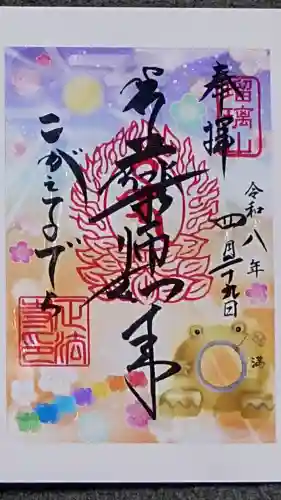 奉拝
瑠璃山
令和八年
四月二十九日
薬師如来
こがえるでら
満